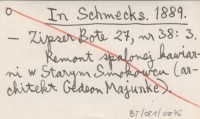 In Schmecks. 1889.
— Zipser Bote 27, nr 38: 3.
Remont spalonej kawiar-
ni w Starym Smokowcu (ar-
chitekt Gedeon Majunke).